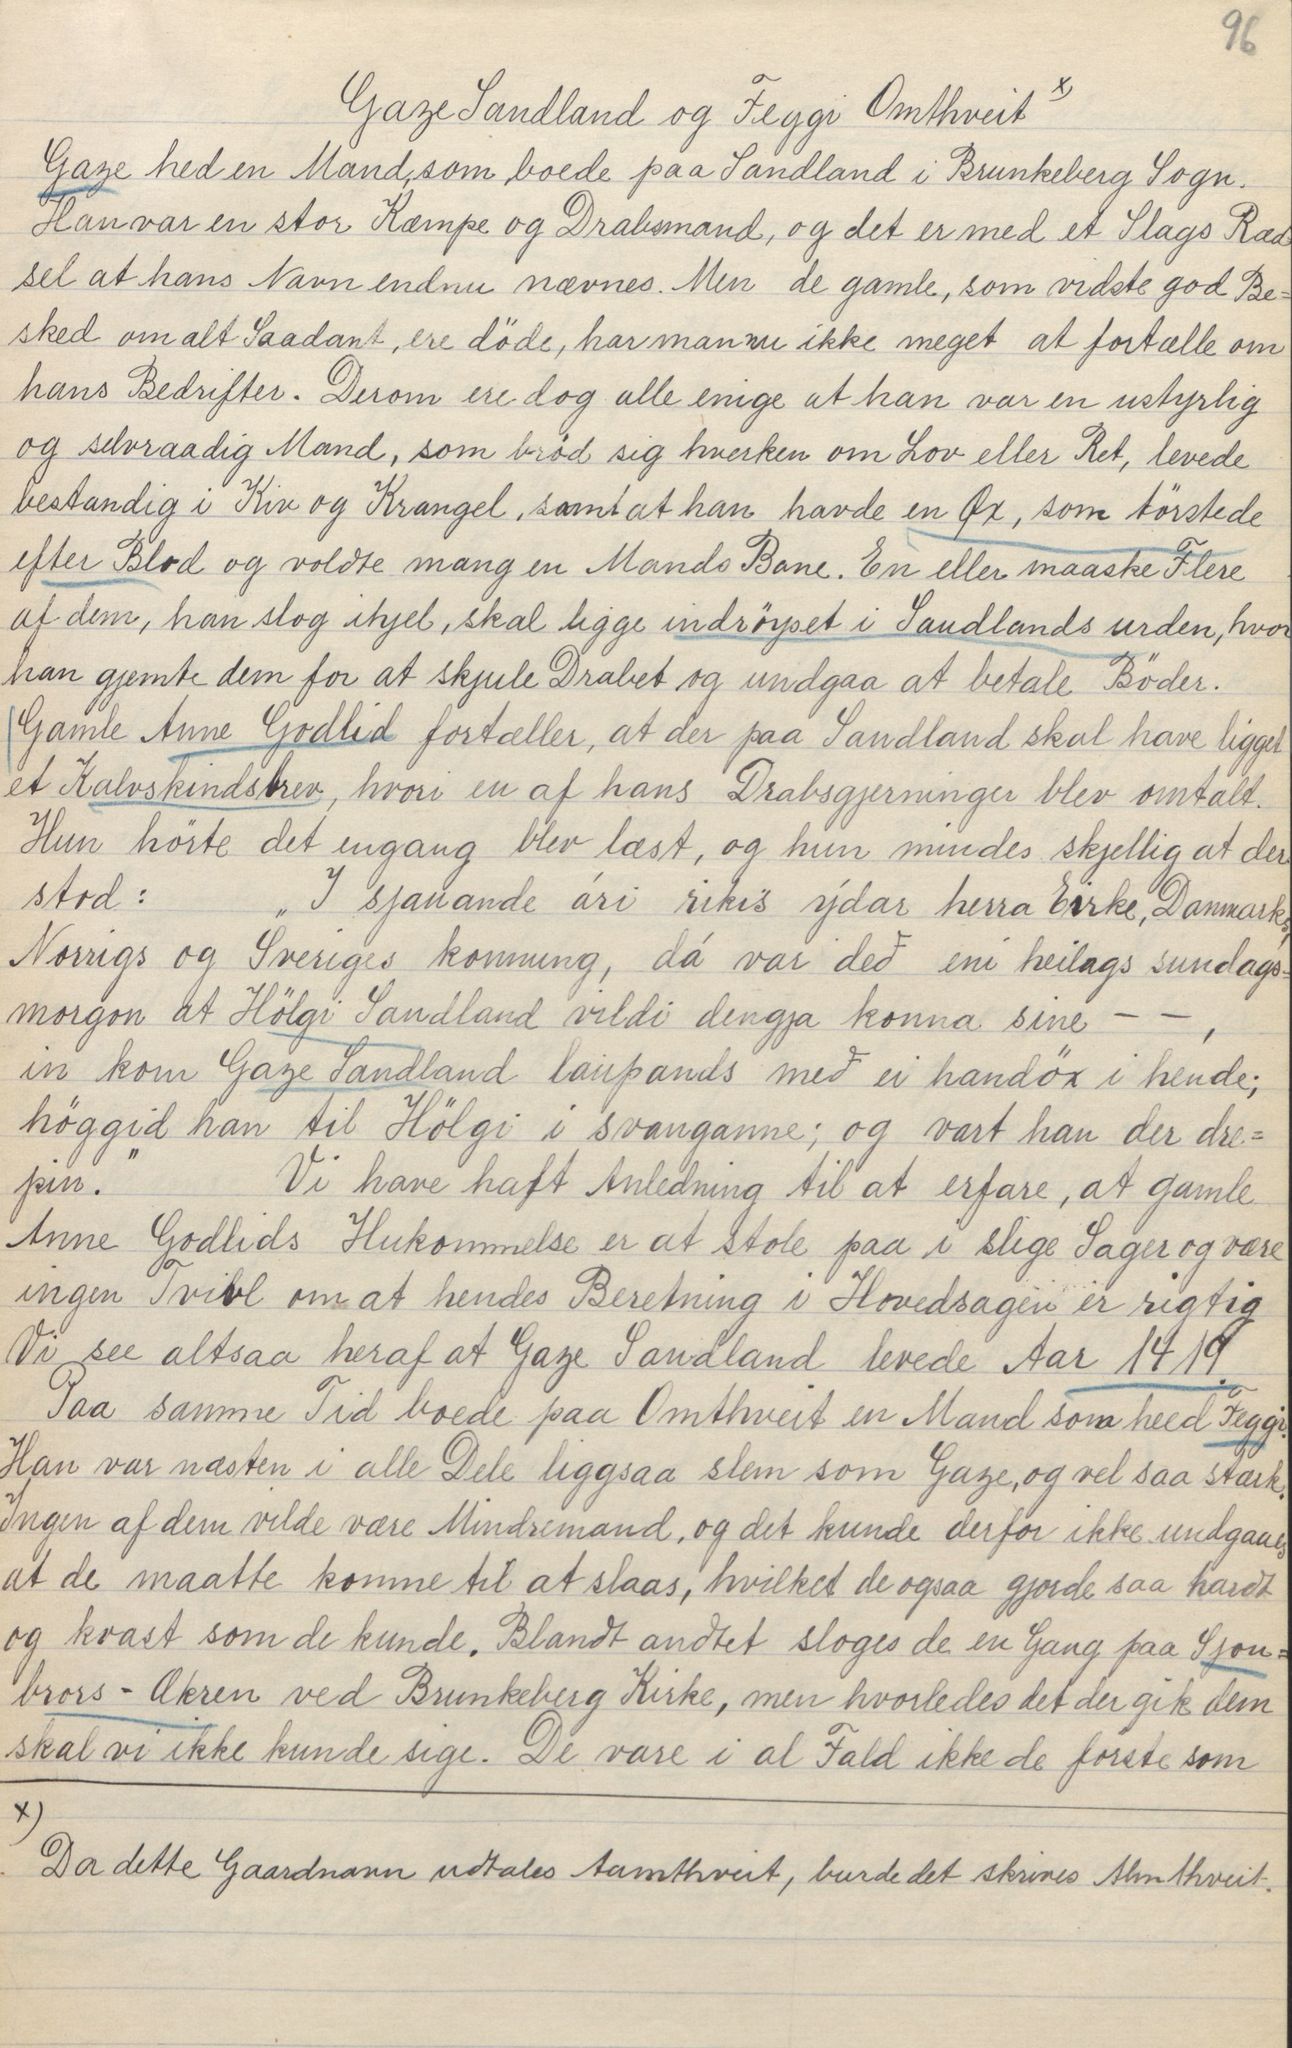 96
Gaze Sandland og Feggi Omthveit x)
Gaze hed en Mand, som boede paa Sandland i Brunkeberg Sogn.
Han var en stor Kæmpe og Drabsmand, og det er med et Slags Ræd
sel at hans Navn endnu nævnes. Men de gamle, som vidste god Be=
sked om alt Saadant, ere döde, har man nu ikke meget at fortælle om
hans Bedrifter. Derom ere dog alle enige at han var en ustyrlig
og selvraadig Mand, som bröd sig hverken om Lov eller Ret, levede
bestandig i Kiv og Krangel, samt at han havde en Øx, som törstede
efter Blod og voldte mang en Mands Bane. En eller maaske Flere
af dem, han slog ihjel, skal ligge indröyset i Sandlands urden, hvor
han gjemte dem for at skjule Drabet og undgaa at betale Böder.
Gamle Anne Godlid fortæller, at der paa Sandland skal have ligget
et Kalvskindsbrev, hvori en af hans Drabsgjerninger blev omtalt.
Hun hörte det engang blev læst, og hun mindes skjellig at der
stod: „I sjauande ári rikis ýdar herra Eirke, Danmarks,
Norrigs og Sveriges konnung, dá var ded eni heilags sundags=
morgon at Hölgi Sandland vildi dengja konna sine – –,
in kom Gaze Sandland laupands med ei handöx i hende;
höggid han til Hölgi i svanganne; og vart han der dre=
pin.” Vi have haft Anledning til at erfare, at gamle
Anne Godlids Hukommelse er at stole paa i slige Sager og være
ingen Tvivl om at hendes Beretning i Hovedsagen er rigtig
Vi see altsaa heraf at Gaze Sandland levede Aar 1419.
Paa samme Tid boede paa Omthveit en Mand som heed Feggi.
Han var næsten i alle Dele liggsaa slem som Gaze, og vel saa stærk.
Ingen af dem vilde være Mindremand, og det kunde derfor ikke undgaaes
at de maatte komme til at slaas, hvilket de ogsaa gjorde saa hardt
og kvast som de kunde. Blandt andtet sloges de en Gang paa Sjon=
brors-Akren ved Brunkeberg Kirke, men hvorledes det der gik dem
skal vi ikke kunde sige. De vare i al Fald ikke de förste som
x)
Da dette Gaardnavn udtales Aamthveit, burde det skrives Almthveit.